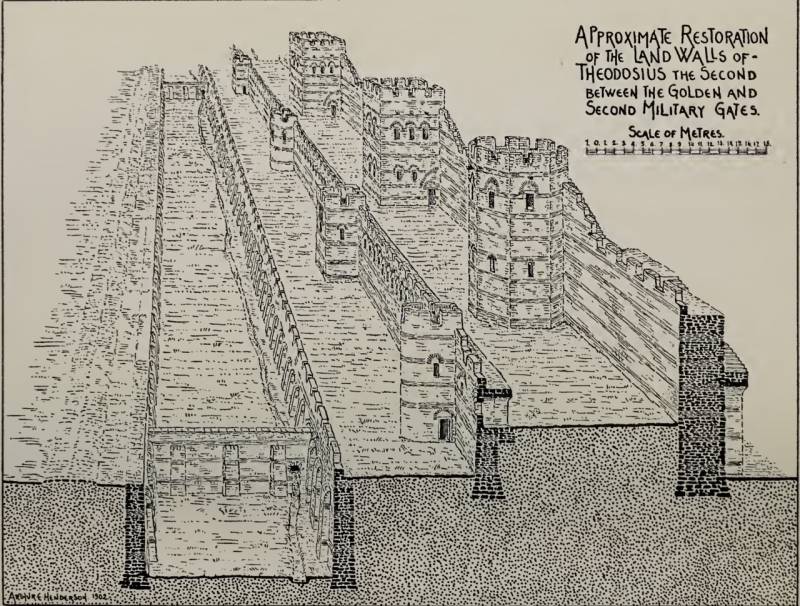 APPROXIMATE RESTORATION
OF THE LAND WALLS OF-
THEODOSIUS THE SECOND
BETWEEN THE GOLDEN AND
SECOND MILITARY GATES.
SCALE OF METRES.
1 0 1 2 3 4 5 6 7 8 9 10 11 12 13 14 15 16 17 18
ARTHUR E HENDERSON 1902